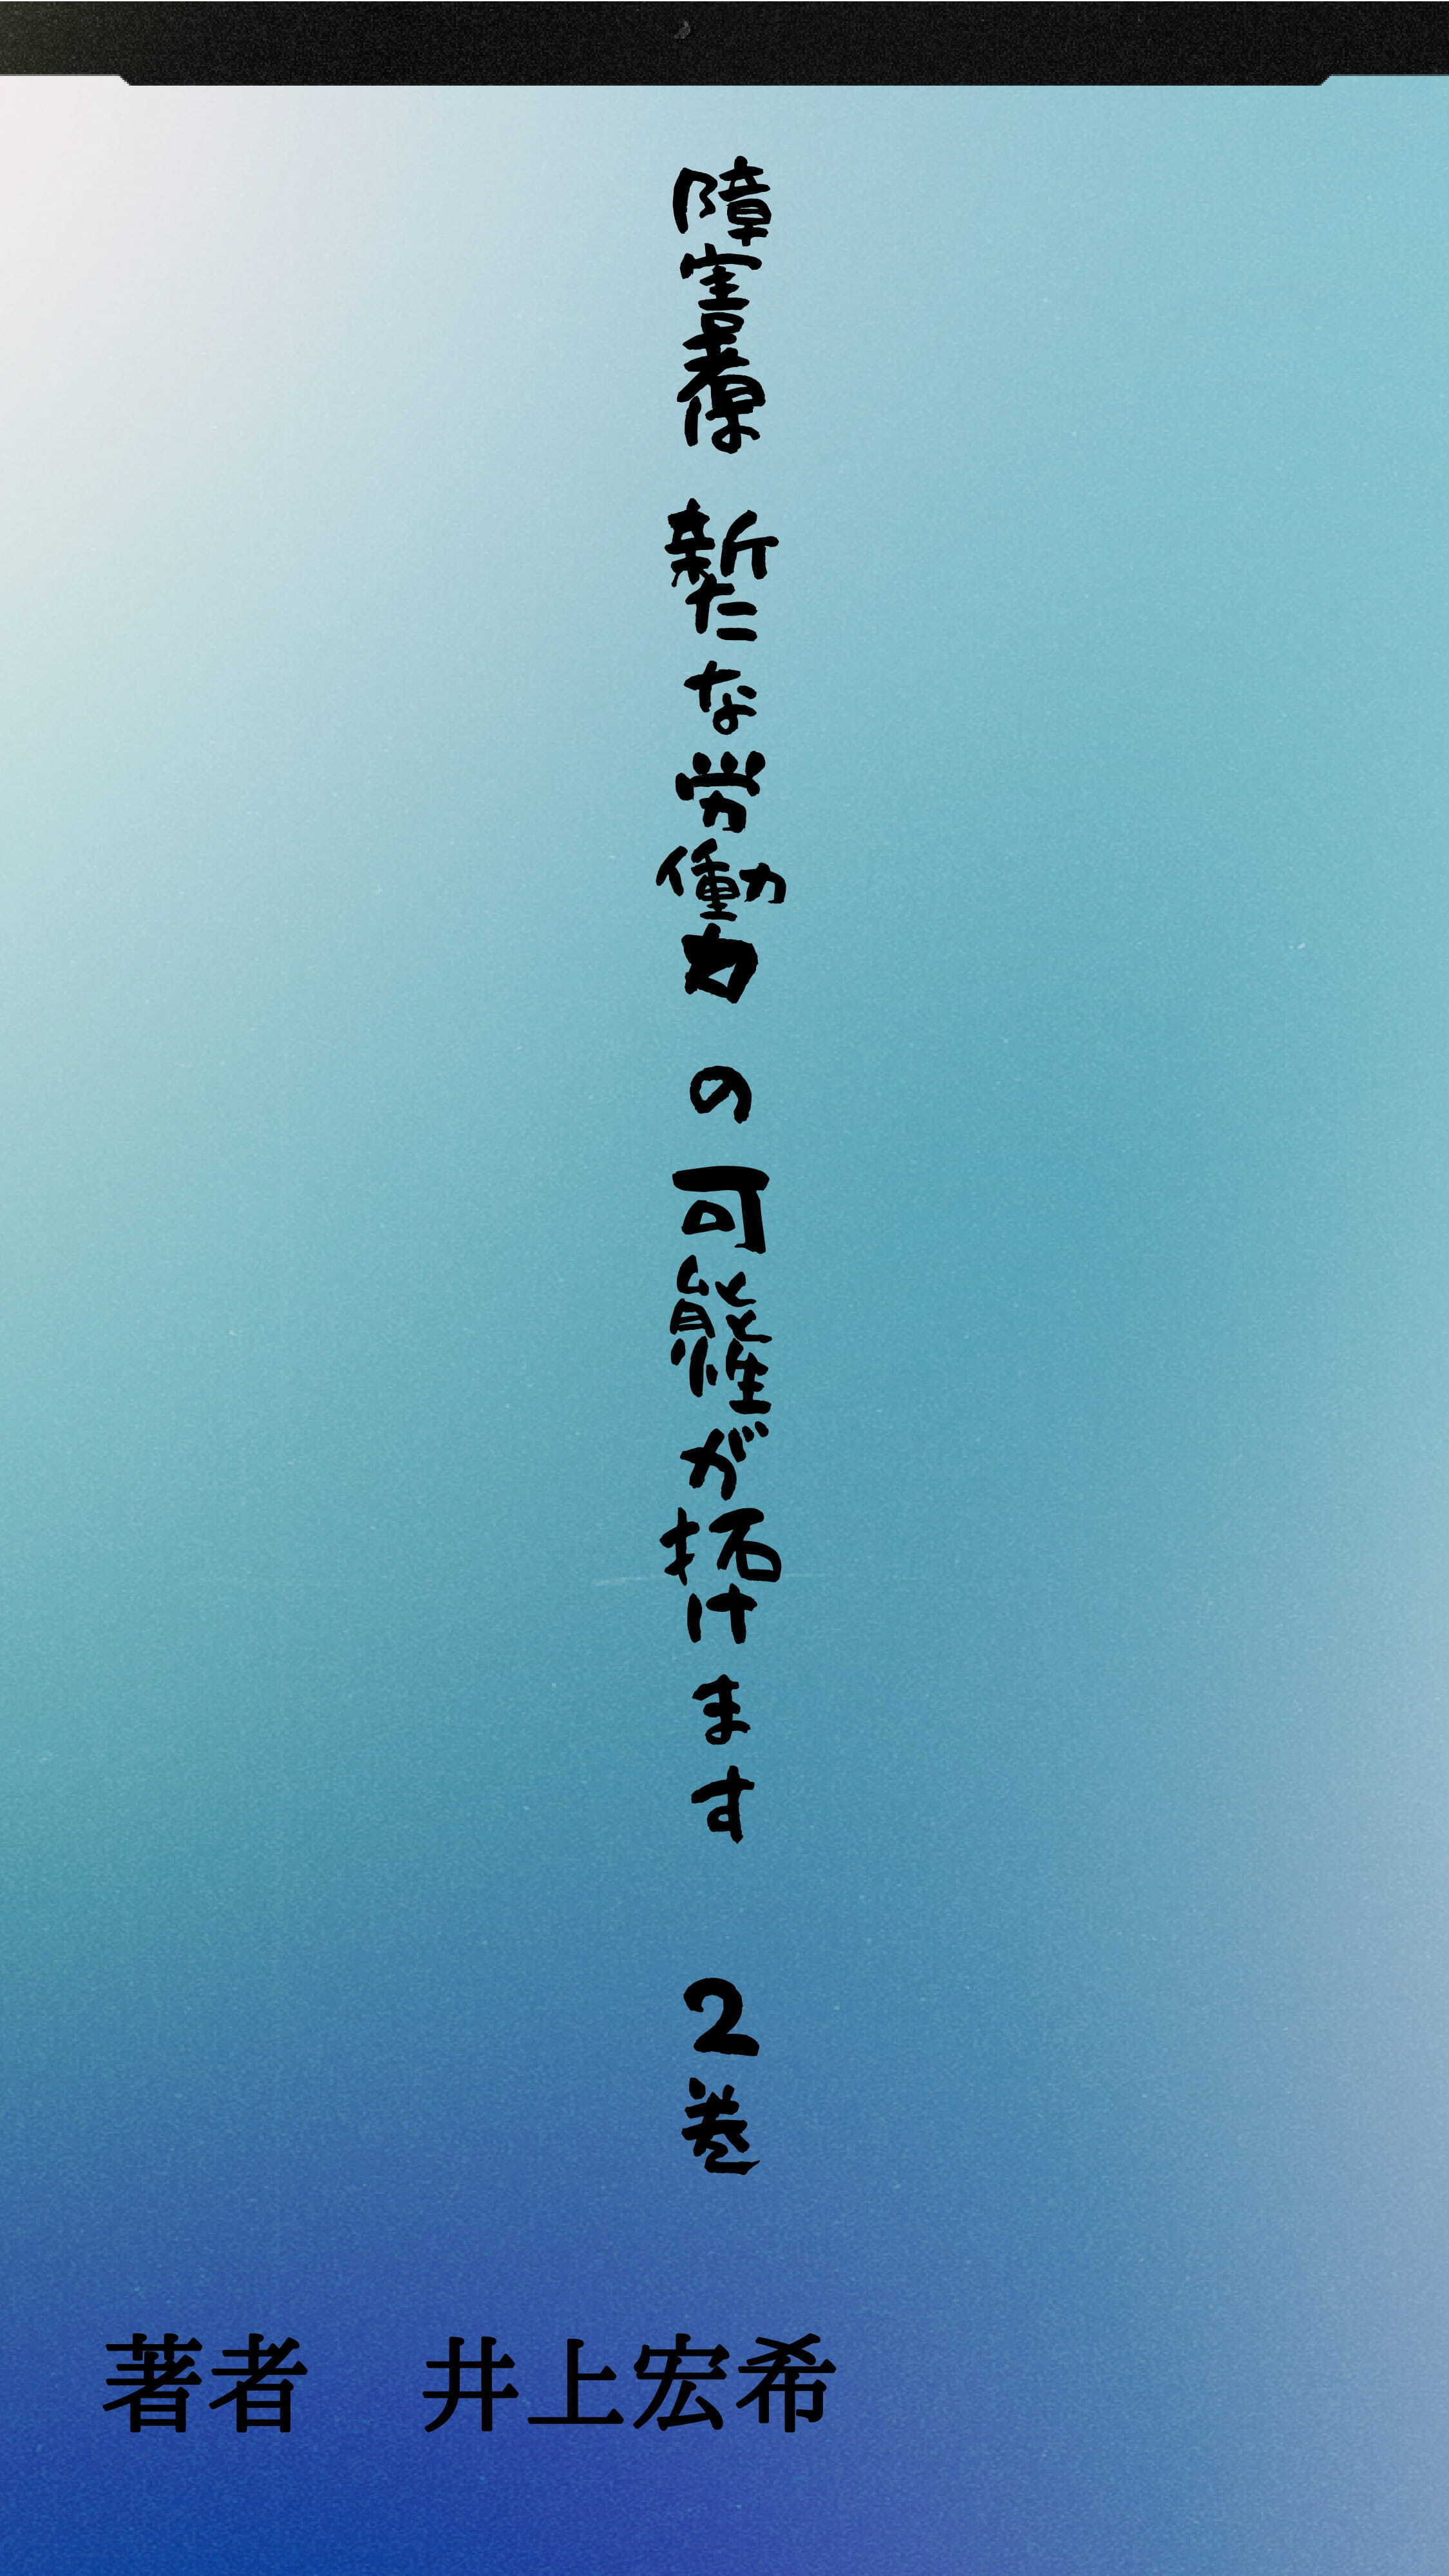 障害者は 新たな労働力 の 可能性が拓けます 2巻
著者 井上宏希